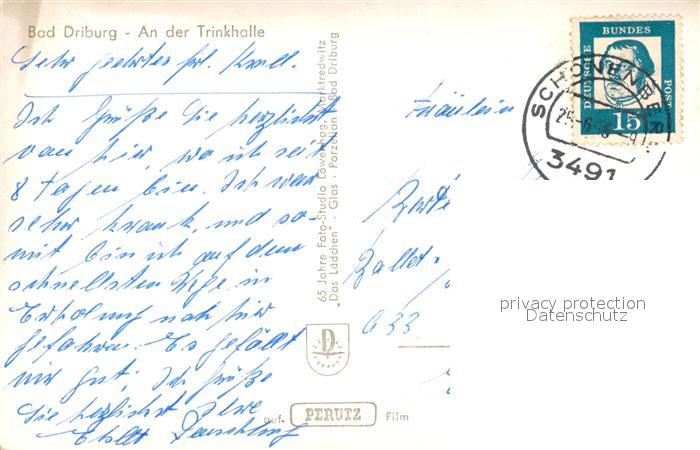 Bad Driburg - An der Trinkhalle
Sehr geehrtes Frl. Kroll.
Ich grüße Sie herzlichst
von hier, wo ich seit
8 Tagen bin. Ich war
sehr krank, und so-
mit bin ich auf dem
schnellsten Wege in
Erholung nach hier
gefahren. Es gefällt
mir gut, Ich grüße
Sie herzlichst Ihre
65 Jahre Foto-Studio Löwenhag, Marktredwitz
"Das Lädchen" - Glas - Porzellan - Bad Driburg
D
auf PERUTZ Film
DEUTSCHE BUNDES POST
15
SCHÖNENBERG
25.-6.
3491
Fräulein
Ballet-
633
privacy protection
Datenschutz